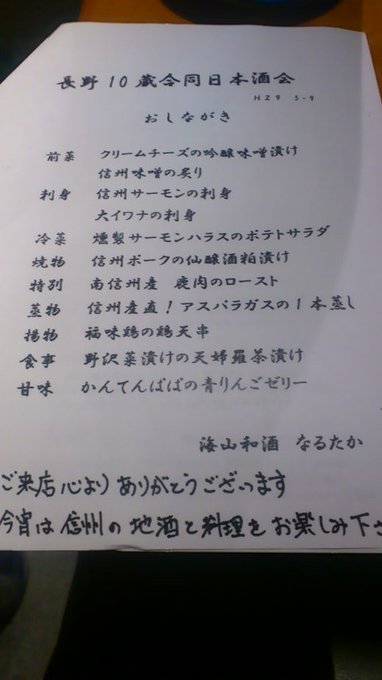 長野10蔵合同日本酒会
H29 5.9
おしながき
前菜 クリームチーズの吟醸味噌漬け
信州味噌の炙り
刺身 信州サーモンの刺身
大イワナの刺身
冷菜 燻製サーモンハラスのポテトサラダ
焼物 信州ポークの仙醸酒粕漬け
特別 南信州産 鹿肉のロースト
蒸物 信州産直！アスパラガスの1本蒸し
揚物 福味鶏の鶏天串
食事 野沢菜漬けの天婦羅茶漬け
甘味 かんてんぱぱの青りんごゼリー
海山和酒 なるたか
ご来店心よりありがとうございます
今宵は信州の地酒と料理をお楽しみ下さ